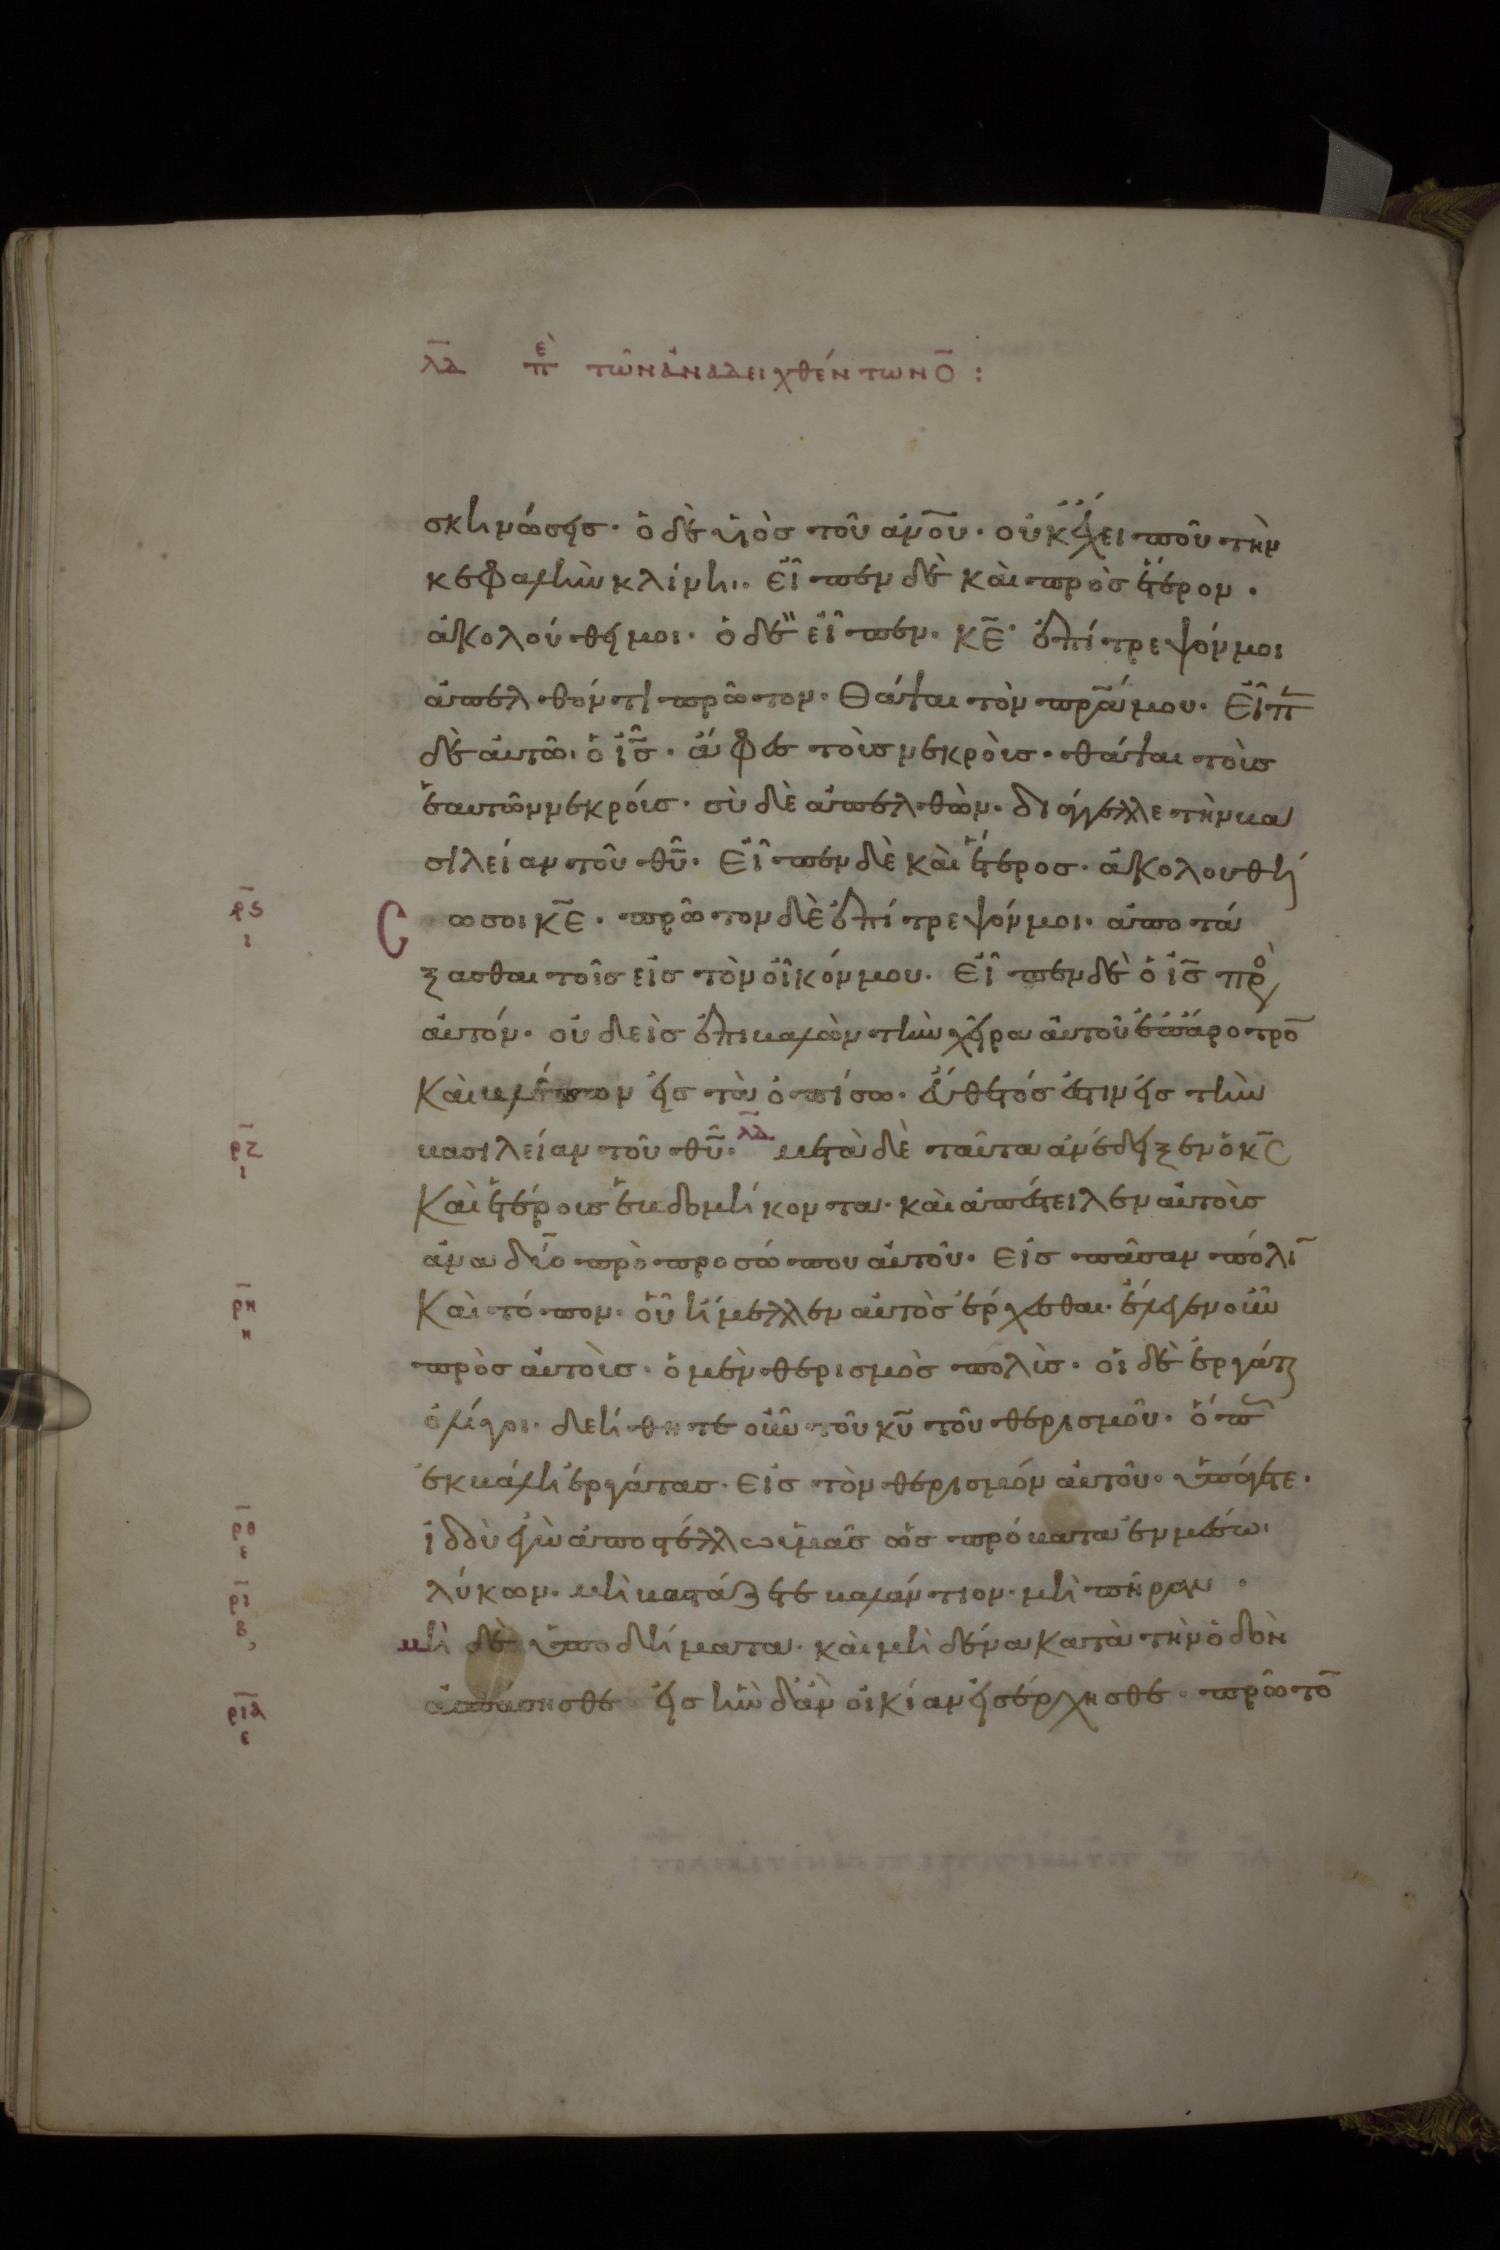 λδ περὶ τῶν ἀναδειχθέντων ο̅ :
σκηνώσεις· ὁ δὲ υἱὸσ τοῦ ἀν̅ο̅υ̅· οὐκ ἔχει ποῦ τὴν
κεφαλὴν κλίνη·· εἶπεν δὲ καὶ πρὸσ ἕτερον·
ἀκολούθει μοι· ὁ δὲ εἶπεν· κ̅ε̅· ἐπίτρεψόν μοι
ἀπελθόντι πρῶτον· θάψαι τὸν πρ̅α̅ μου· Εἶπ
δὲ αὐτῶ· ὁ ι̅σ̅· ἄφεσ τοὺσ νεκροὺσ· θάψαι τοὺσ
ἑαυτῶν νεκρούσ· σὺ δὲ ἀπελθὼν· διάγγελλε τὴν βα
σιλείαν τοῦ θ̅υ̅· Εἶπεν δὲ καὶ ἕτεροσ· ἀκολουθή
ρ̅ϛ̅ ι σω σοι κ̅ε̅· πρῶτον δὲ ἐπίτρεψόν μοι· ἀποτά
ξασθαι τοῖσ εἰσ τὸν οἶκόν μου· Εἶπεν δὲ ὁ ι̅σ̅ πρὸ
αὐτόν· οὐδεὶσ ἐπιβαλὼν τὴν χεῖρα αὐτοῦ ἐπ' ἄροτρο̅
Καὶ βλέπων εἰσ τὰ ὀπίσω· εὔθετόσ ἐστιν εἰσ τὴν
ρ̅ζ̅ ι βασιλείαν τοῦ θ̅υ̅· λδ μετὰ δὲ ταῦτα ἀνέδειξεν ὁ κ̅σ̅
Καὶ ἑτέρουσ ἑβδομήκοντα· καὶ ἀπέστειλεν αὐτοὺσ
ἀνα δύο πρὸ προσώπου αὐτοῦ· Εἰσ πᾶσαν πόλι̅
ρ̅η̅ η Καὶ τόπον· οὗ ἤμελλεν αὐτὸσ ἔρχεσθαι· ἔλεγεν οὖν
πρὸσ αὐτοὺσ· ὁ μὲν θερισμὸσ πολὺσ· οἱ δὲ ἐργάται
ὀλίγοι· δεήθητε οὖν τοῦ κ̅υ̅ τοῦ θερισμοῦ· ὅπω
ἐκβάλη ἐργάτασ· Εἰσ τὸν θερισμόν αὐτοῦ· ὑπάγετε·
ρ̅θ̅ ε ἰδοὺ ἐγὼ ἀποστέλλω ὑμᾶσ ὡσ πρόβατα ἐν μέσω·
ρ̅ι̅ β λύκων· μὴ βαστάζετε βαλάντιον· μὴ πήραν·
μὴ δὲ ὑποδήματα· καὶ μὴ δένα Κατὰ τὴν ὁδὸν
ρ̅ι̅α̅ ε ἀσπάσησθε εἰσ ἣν δ' ἂν οἰκίαν εἰσέρχησθε· πρῶτο̅